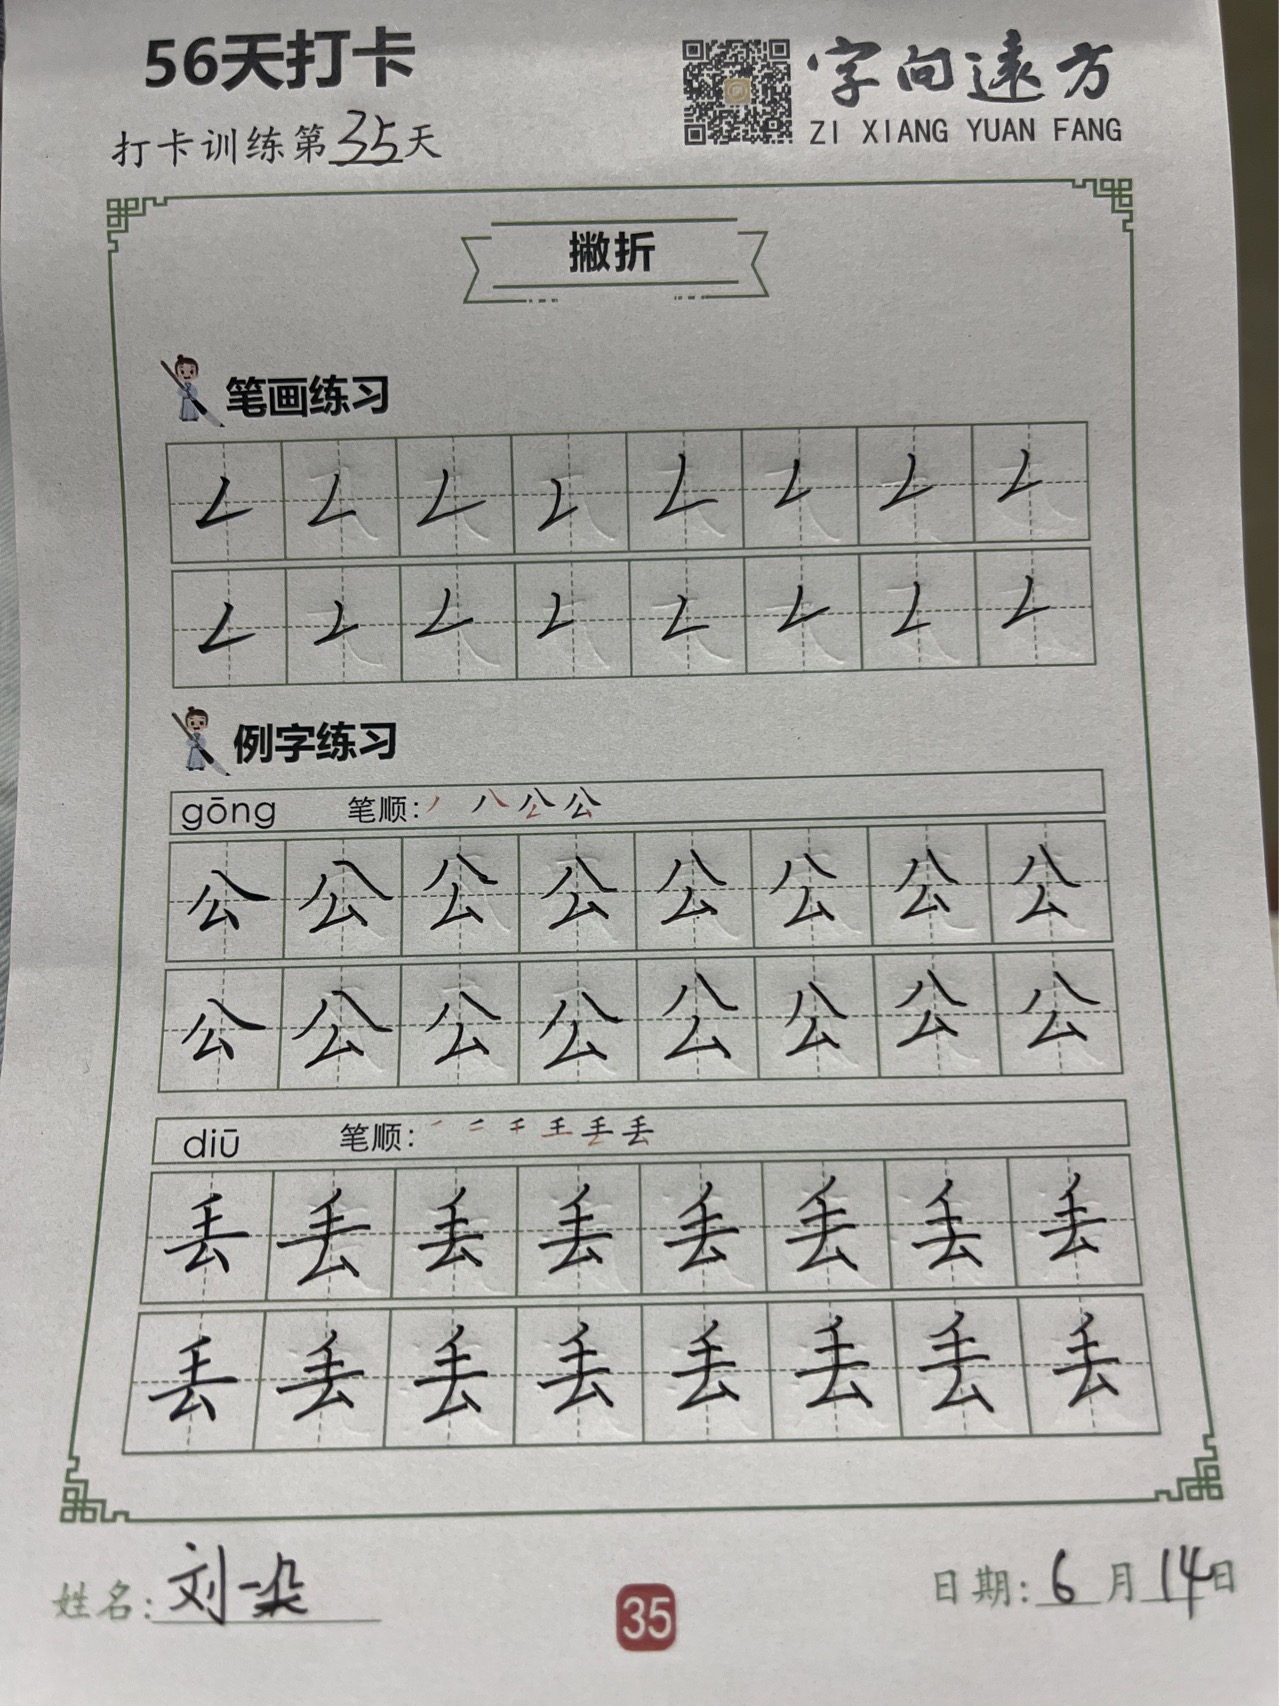 56天打卡
字向遠方
ZI XIANG YUAN FANG
打卡训练第35天
撇折
笔画练习
𠃋 𠃋 𠃋 𠃋 𠃋 𠃋 𠃋 𠃋
𠃋 𠃋 𠃋 𠃋 𠃋 𠃋 𠃋 𠃋
例字练习
gōng 笔顺: 丿 八 公 公
公 公 公 公 公 公 公 公
公 公 公 公 公 公 公 公
diū 笔顺: 一 二 千 王 丢 丢
丢 丢 丢 丢 丢 丢 丢 丢
丢 丢 丢 丢 丢 丢 丢 丢
姓名: 刘一朵
35
日期: 6月14日